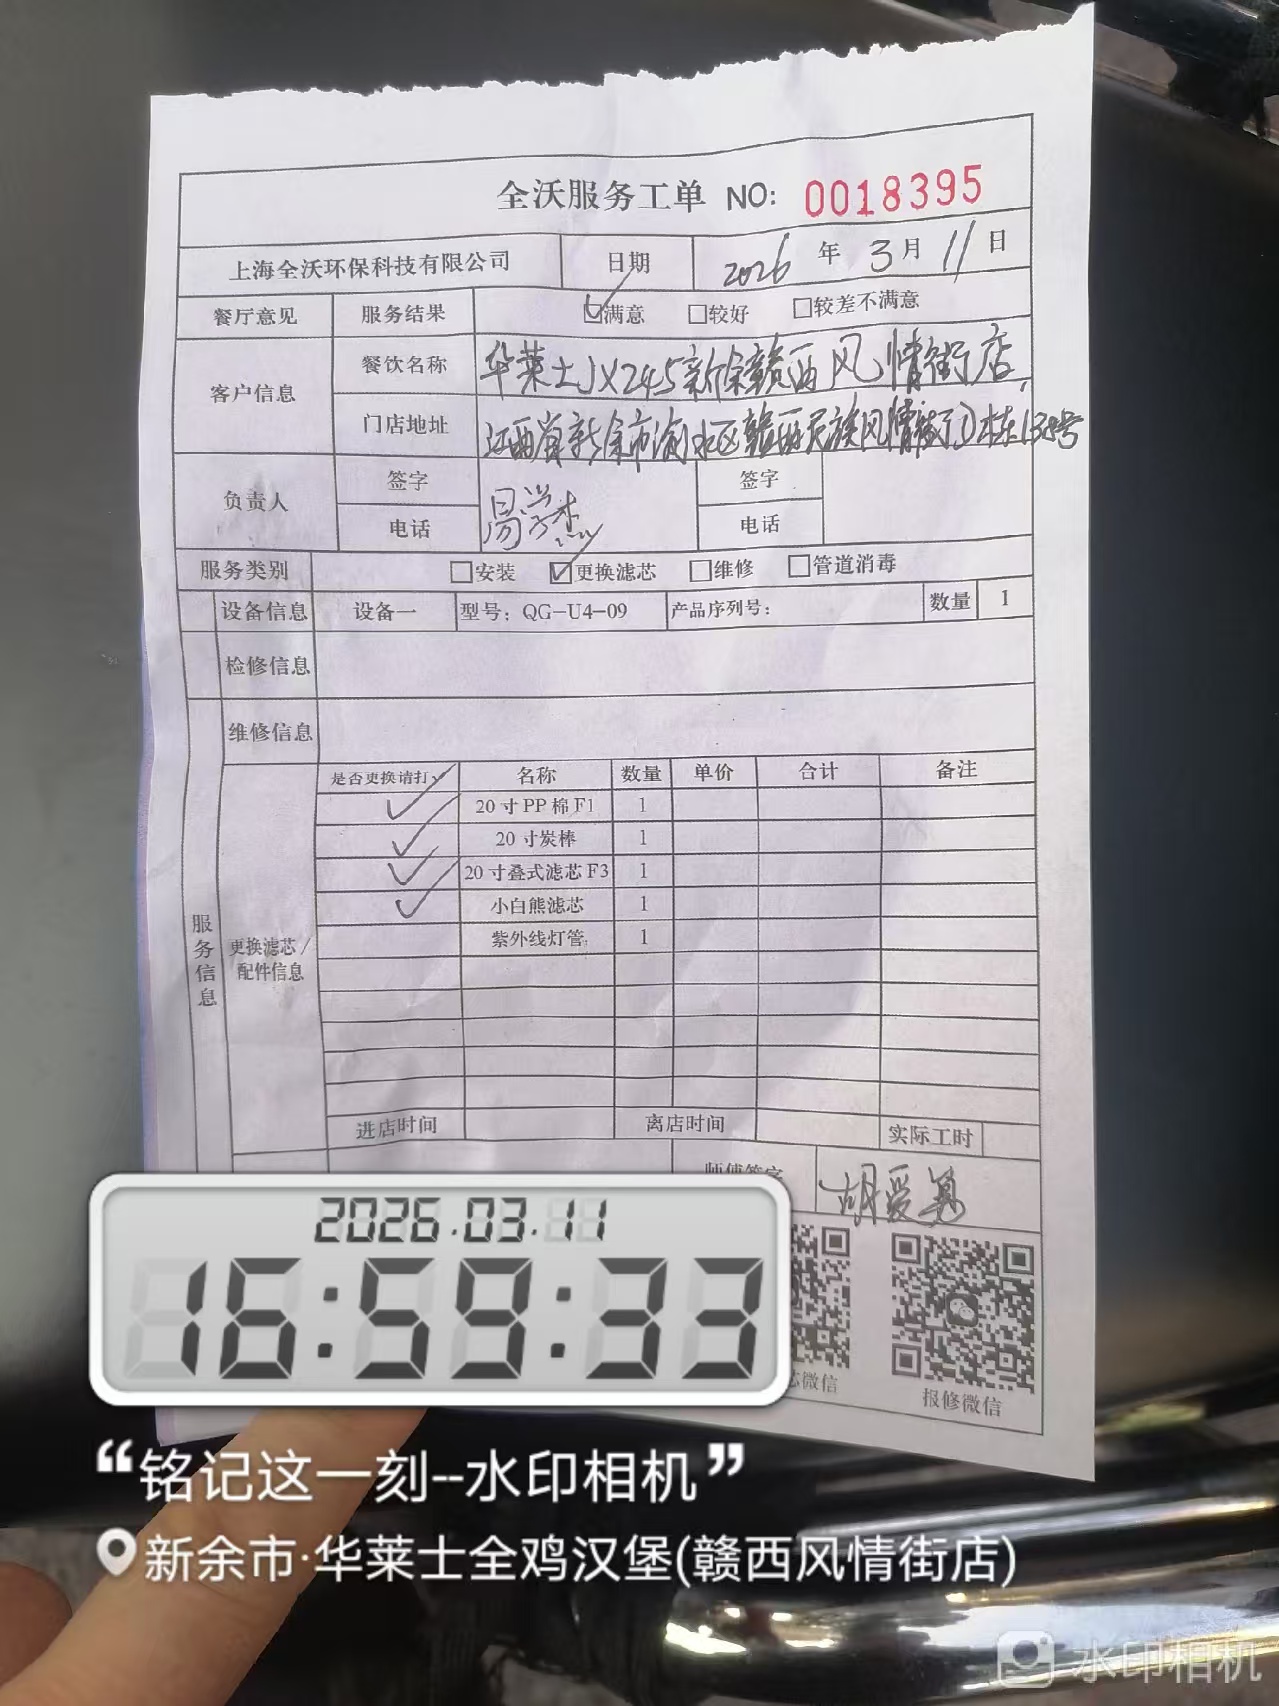 全沃服务工单 NO: 0018395
上海全沃环保科技有限公司 日期 2026 年 3 月 11 日
餐厅意见 服务结果 ☑满意 □较好 □较差不满意
客户信息 餐饮名称 华莱士JX245新余赣西风情街店
门店地址 江西省新余市渝水区赣西民族风情街①栋138号
负责人 签字 签字
电话 电话
服务类别 □安装 ☑更换滤芯 □维修 □管道消毒
设备信息 设备一 型号：QG-U4-09 产品序列号： 数量 1
检修信息
维修信息
服务信息
更换滤芯/
配件信息
是否更换请打✓ 名称 数量 单价 合计 备注
✓ 20寸PP棉F1 1
✓ 20寸炭棒 1
✓ 20寸叠式滤芯F3 1
✓ 小白熊滤芯 1
紫外线灯管 1
进店时间 离店时间 实际工时
师傅签字
芯微信 报修微信
2026.03.11
16:59:33
“铭记这一刻--水印相机”
新余市·华莱士全鸡汉堡(赣西风情街店)
水印相机